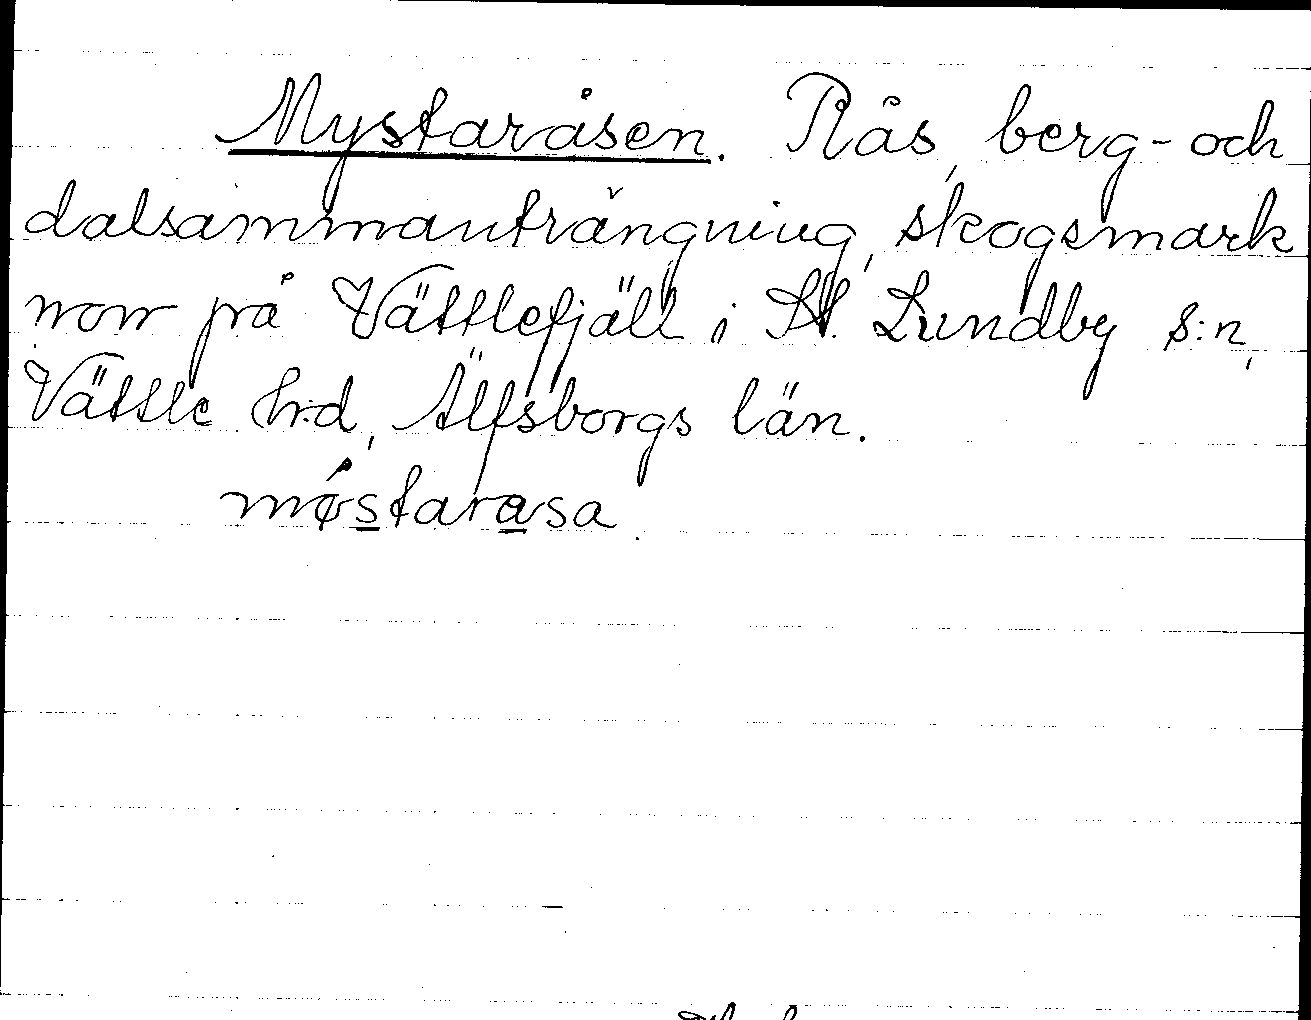 Mystaråsen. Rås, berg- och
dalsammanträngning, skogsmark
norr på Vättlefjäll i St. Lundby s:n,
Vättle h:d, Älfsborgs län.
møstarasa.